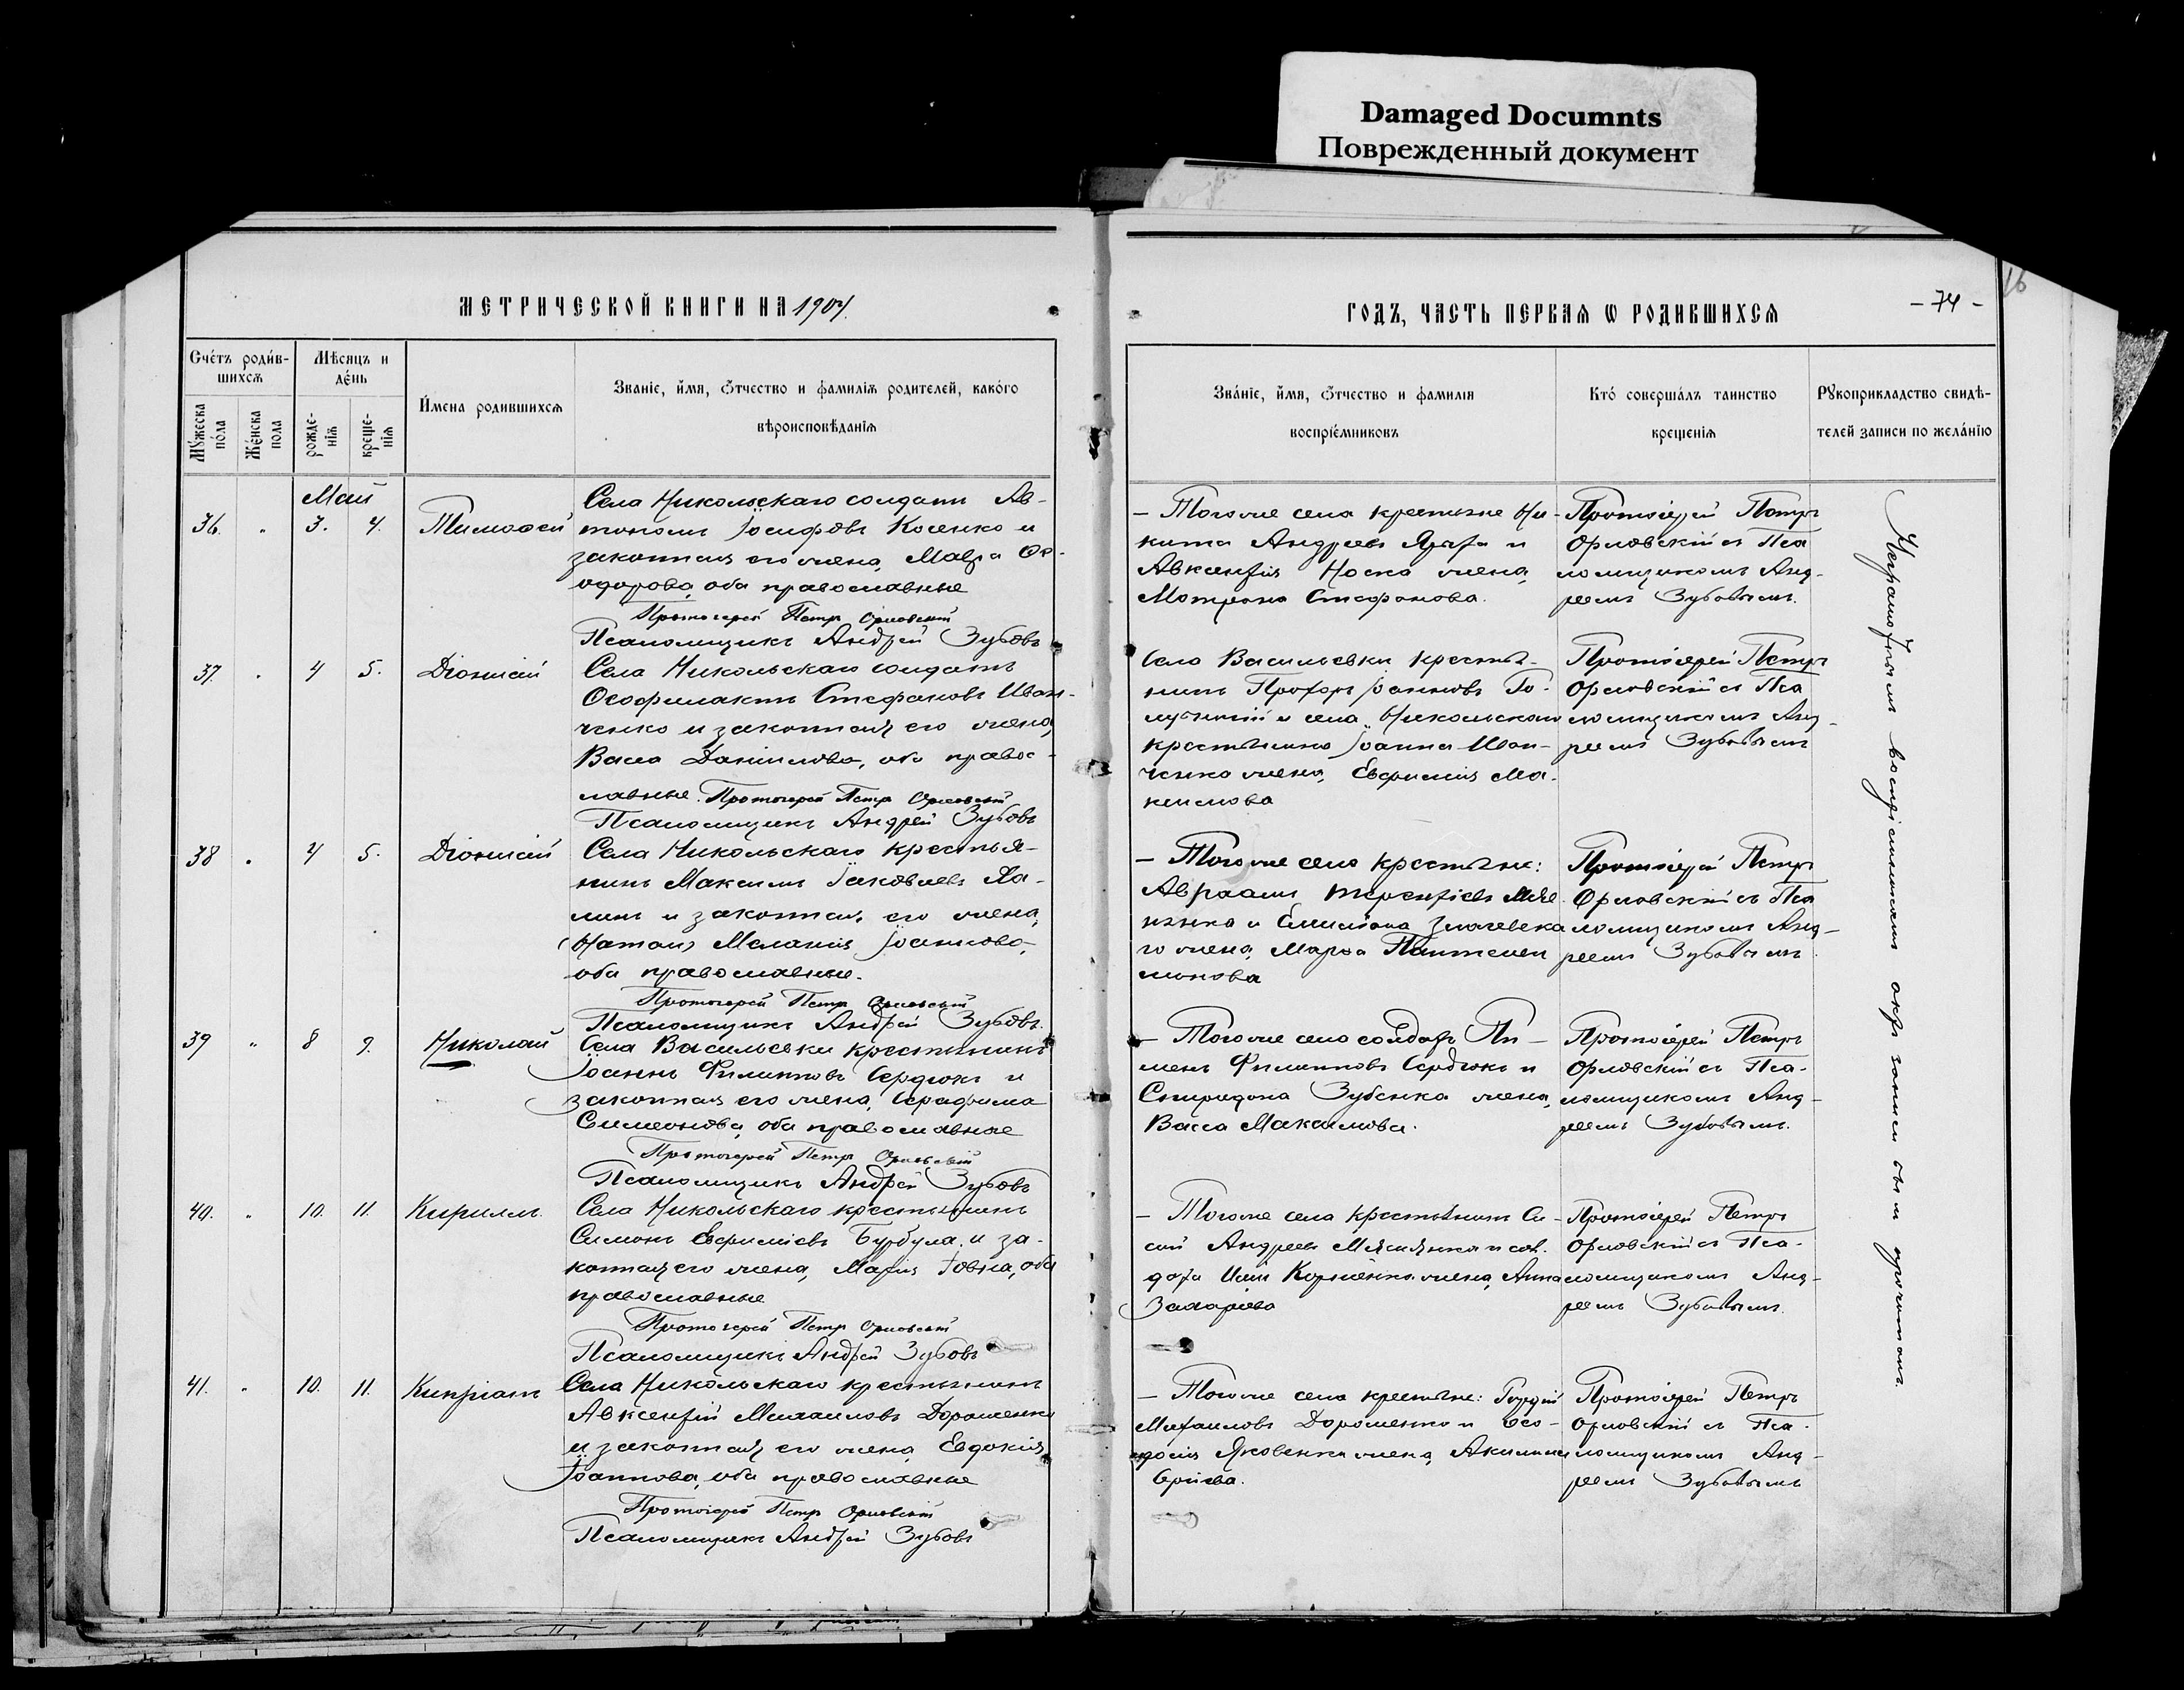 Damaged Documnts
Поврежденный документ
МЕТРИЧЕСКОЙ КНИГИ НА 1904.
ГОДЪ, ЧАСТЬ ПЕРВАЯ Ѡ РОДИВШИХСѦ
- 74 -
16
Счéтъ роди́в-
шихсѧ
Мѣсяцъ и
дéнь
Мꙋжеска
пóла
Жéнска
пола
рожде-
нїѧ
креще-
нїѧ
И́мена родившихсѧ
Званіе, и́мя, ѻтчество и фамиліѧ родителей, какóго
вѣроисповѣданіѧ
Звáніе, и́мя, ѻтчество и фамилія
воспріéмниковъ
Ктó совершáлъ таинство
крещеніѧ
Рꙋкоприкладство свидѣ-
телей записи по желáнію
Май
36. " 3. 4. Тимофей
Села Никольскаго солдатъ Ав-
тономъ Іосифовъ Косенко и
законная его жена, Мавра Ѳе-
одорова, оба православные
Протоіерей Петръ Орловскій
Псаломщикъ Андрей Зубовъ
— Того же села крестьяне Ни-
кита Андреевъ и
Авксентія Носка жена,
Матрона Стефанова.
Протоіерей Петръ
Орловскій съ Пса
ломщикомъ Анд-
реемъ Зубовымъ.
37. " 4 5. Діонисій
Села Никольскаго солдатъ
Ѳеофилактъ Стефановъ Иван-
ченко и законная его жена,
Васса Даніилова, оба правос-
лавные. Протоіерей Петръ Орловскій
Псаломщикъ Андрей Зубовъ
Села Васильевки крестья-
нинъ Прохоръ Іоанновъ Го-
и села Никольскаго
крестьянина Іоанна Иван-
ченка жена, Евфимія Ма-
ксимова
Протоіерей Петръ
Орловскій съ Пса
ломщикомъ Анд-
реемъ Зубовымъ
38 " 4 5. Діонисій
Села Никольскаго крестья-
нинъ Максимъ Іаковлевъ
и законная его жена,
Меланія Іоаннова,
оба православные.
Протоіерей Петръ Орловскій
Псаломщикъ Андрей Зубовъ.
— Того же села крестьяне:
Авраамъ Терентіевъ
и Емиліана
го жена, Марѳа Пантелеи
монова
Протоіерей Петръ
Орловскій съ Пса
ломщикомъ Анд-
реемъ Зубовымъ.
39 " 8 9. Николай
Села Васильевки крестьянинъ
Іоаннъ Филипповъ Сердюкъ и
законная его жена, Серафима
Симеонова, оба православные
Протоіерей Петръ Орловскій
Псаломщикъ Андрей Зубовъ
— Того же села солдатъ Пи-
менъ Филипповъ Сердюкъ и
Спиридона Зубенка жена,
Васса Максимова.
Протоіерей Петръ
Орловскій съ Пса-
ломщикомъ Анд-
реемъ Зубовымъ.
40. " 10. 11. Кириллъ.
Села Никольскаго крестьянинъ
Симонъ Евфиміевъ Бурбула и за-
конная его жена, Марія Іовна, оба
православные
Протоіерей Петръ Орловскій
Псаломщикъ Андрей Зубовъ
— Того же села крестьянинъ Си-
Андреевъ и сол-
дата Корніенка жена, Анна
Захаріева
Протоіерей Петръ
Орловскій съ Пса-
ломщикомъ Анд-
реемъ Зубовымъ.
41. " 10. 11. Кипріанъ
Села Никольскаго крестьянинъ
Авксентій Михаиловъ Дорошенко
и законная его жена, Евдокія
Іоаннова, оба православные
Протоіерей Петръ Орловскій
Псаломщикъ Андрей Зубовъ
— Того же села крестьяне: Гордій
Михаиловъ Дорошенко и Ѳео-
досія Яковенка жена, Акилина
Протоіерей Петръ
Орловскій съ Пса-
ломщикомъ Анд-
реемъ Зубовымъ
Неграмотнымъ воспріемникамъ актъ записи былъ прочитанъ.